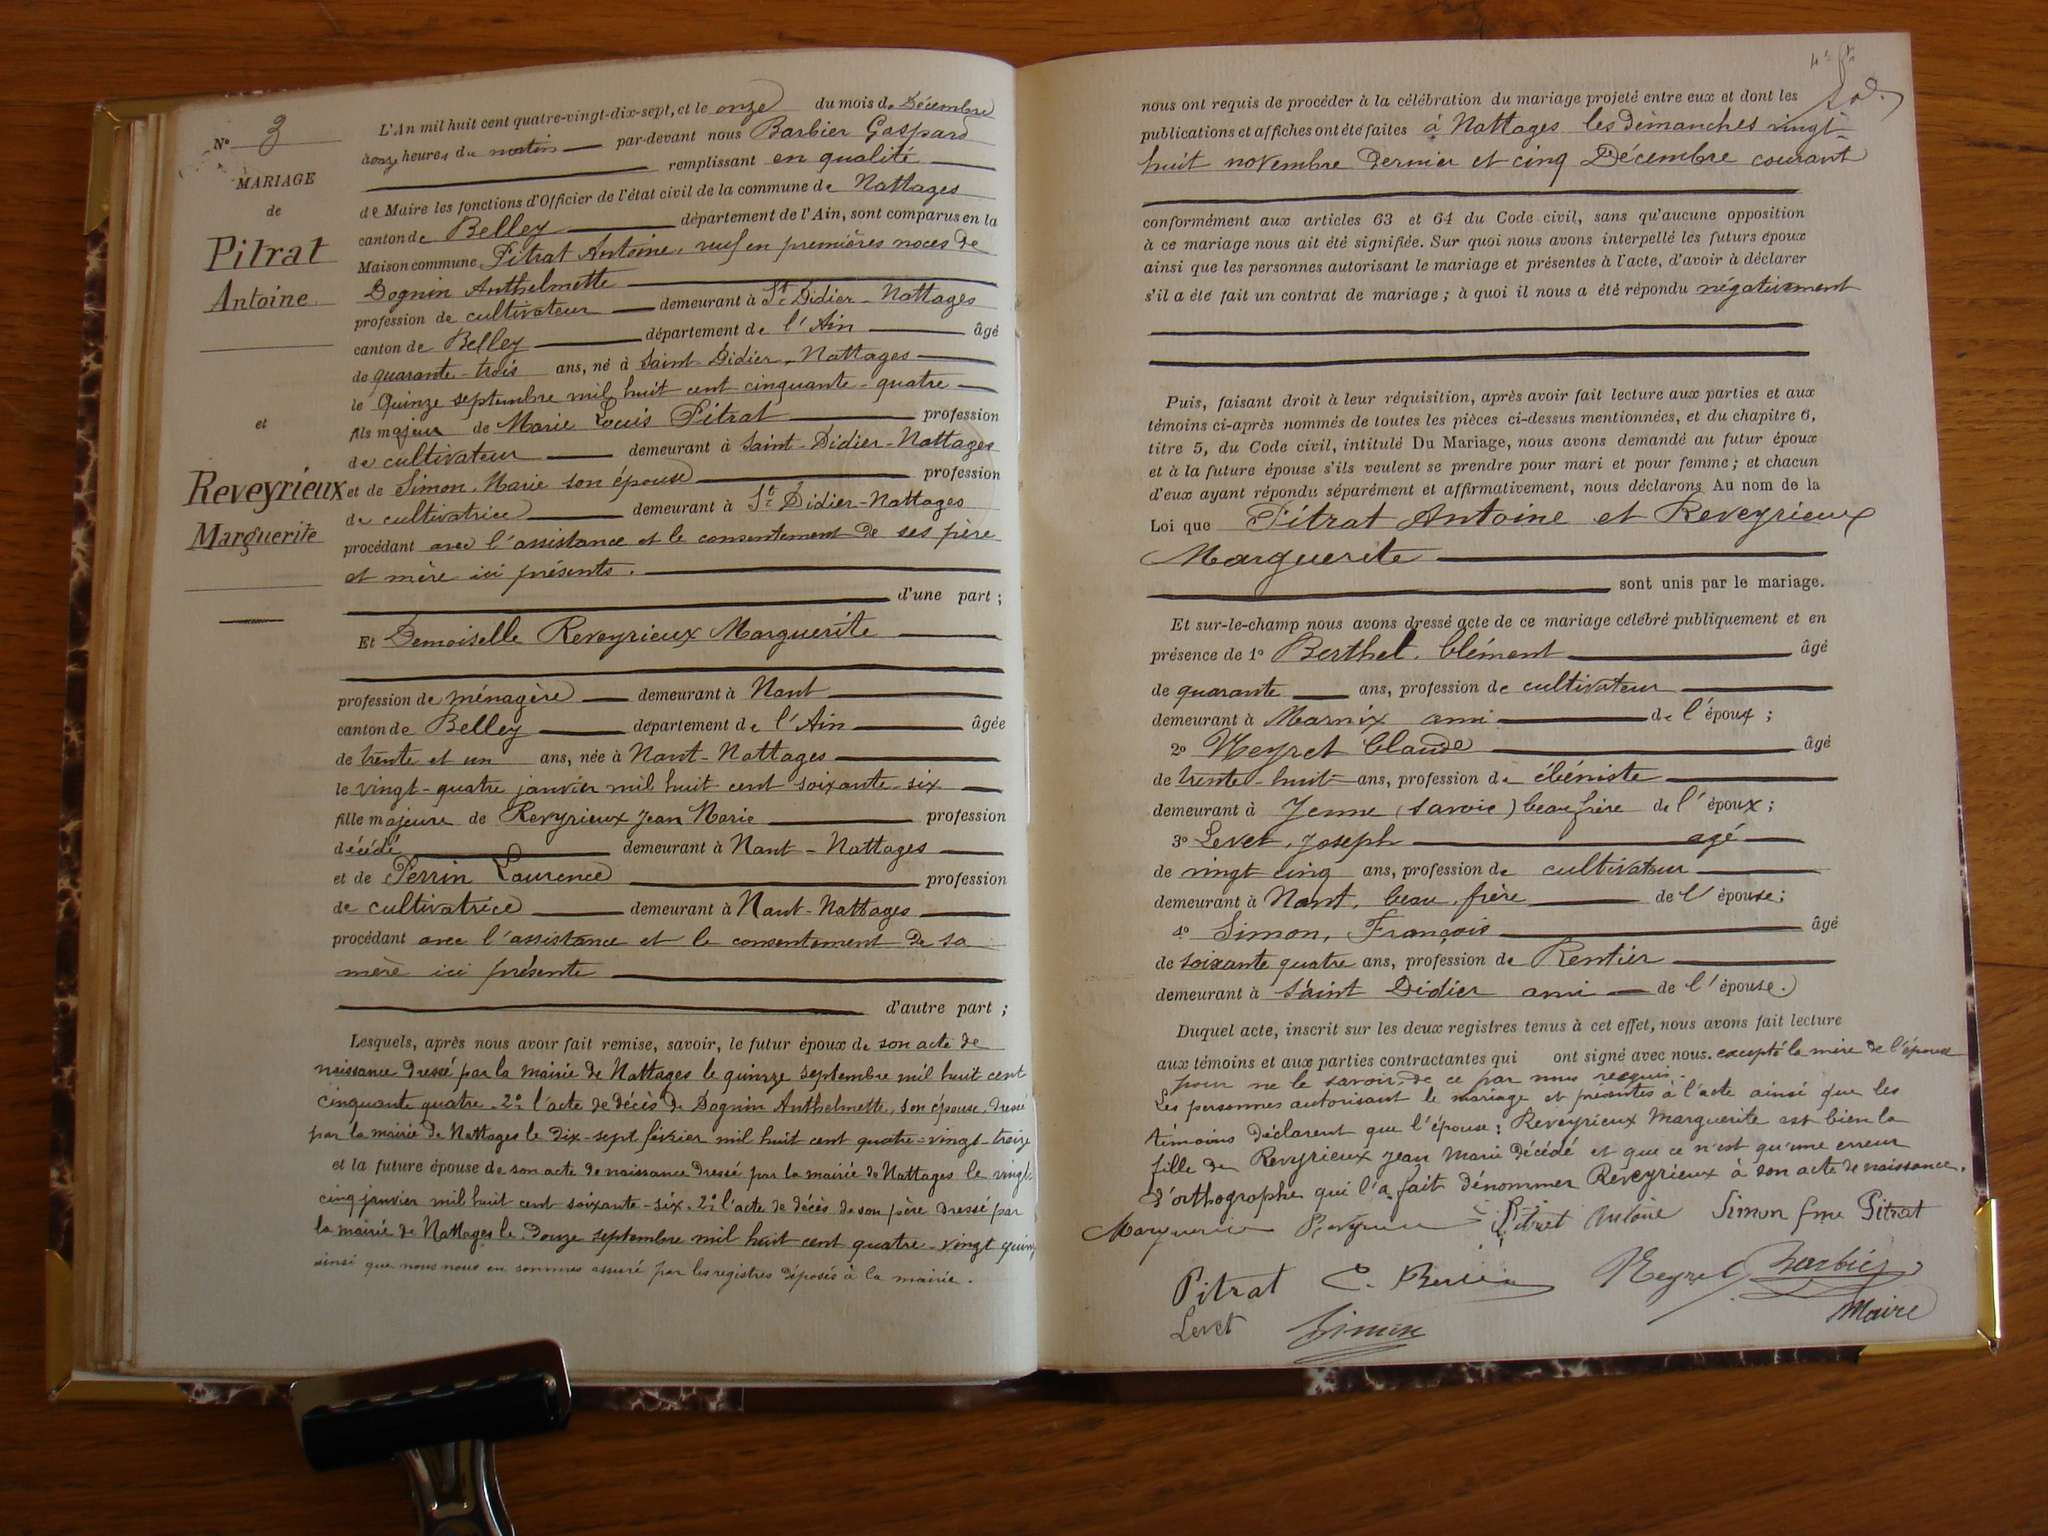 N° 3
MARIAGE
de
Pitrat
Antoine
et
Reveyrieux
Marguerite
L'An mil huit cent quatre-vingt-dix-sept, et le onze du mois de Décembre
à onze heures du matin par-devant nous Barbier Gaspard
remplissant en qualité
de Maire les fonctions d'Officier de l'état civil de la commune de Nattages
canton de Belley département de l'Ain, sont comparus en la
Maison commune Pitrat Antoine, veuf en premières noces de
Dognin Anthelmette
profession de cultivateur demeurant à St Didier-Nattages
canton de Belley département de l'Ain âgé
de quarante-trois ans, né à Saint-Didier, Nattages
le Quinze septembre mil huit cent cinquante-quatre
fils majeur de Marie Louis Pitrat profession
de cultivateur demeurant à Saint-Didier-Nattages
et de Simon, Marie son épouse profession
de cultivatrice demeurant à St Didier-Nattages
procédant avec l'assistance et le consentement de ses père
et mère ici présents.
d'une part ;
Et Demoiselle Reveyrieux Marguerite
profession de ménagère demeurant à Nant
canton de Belley département de l'Ain âgée
de trente et un ans, née à Nant-Nattages
le vingt-quatre janvier mil huit cent soixante-six
fille majeure de Revyrieux Jean Marie profession
décédé demeurant à Nant-Nattages
et de Perrin Laurence profession
de cultivatrice demeurant à Nant-Nattages
procédant avec l'assistance et le consentement de sa
mère ici présente
d'autre part ;
Lesquels, après nous avoir fait remise, savoir, le futur époux de son acte de
naissance dressé par la mairie de Nattages le quinze septembre mil huit cent
cinquante quatre. 2° l'acte de décès de Dognin Anthelmette, son épouse, dressé
par la mairie de Nattages le dix-sept février mil huit cent quatre-vingt-treize
et la future épouse de son acte de naissance dressé par la mairie de Nattages le vingt-
cinq janvier mil huit cent soixante-six. 2° l'acte de décès de son père dressé par
la mairie de Nattages le Douze septembre mil huit cent quatre-vingt quinze
ainsi que nous nous en sommes assuré par les registres déposés à la mairie.
nous ont requis de procéder à la célébration du mariage projeté entre eux et dont les
publications et affiches ont été faites à Nattages les dimanches vingt-
huit novembre dernier et cinq Décembre courant
conformément aux articles 63 et 64 du Code civil, sans qu'aucune opposition
à ce mariage nous ait été signifiée. Sur quoi nous avons interpellé les futurs époux
ainsi que les personnes autorisant le mariage et présentes à l'acte, d'avoir à déclarer
s'il a été fait un contrat de mariage ; à quoi il nous a été répondu négativement
Puis, faisant droit à leur réquisition, après avoir fait lecture aux parties et aux
témoins ci-après nommés de toutes les pièces ci-dessus mentionnées, et du chapitre 6,
titre 5, du Code civil, intitulé Du Mariage, nous avons demandé au futur époux
et à la future épouse s'ils veulent se prendre pour mari et pour femme ; et chacun
d'eux ayant répondu séparément et affirmativement, nous déclarons Au nom de la
Loi que Pitrat Antoine et Reveyrieux
Marguerite
sont unis par le mariage.
Et sur-le-champ nous avons dressé acte de ce mariage célébré publiquement et en
présence de 1° Berthet. Clément âgé
de quarante ans, profession de cultivateur
demeurant à Marnix ami de l'époux ;
2° Neyret Claude âgé
de trente-huit ans, profession de ébéniste
demeurant à Yenne (Savoie) beau frère de l'époux ;
3° Levet, Joseph agé
de vingt cinq ans, profession de cultivateur
demeurant à Nant, beau frère de l'épouse ;
4° Simon, François âgé
de soixante quatre ans, profession de Rentier
demeurant à Saint Didier ami de l'épouse.
Duquel acte, inscrit sur les deux registres tenus à cet effet, nous avons fait lecture
aux témoins et aux parties contractantes qui ont signé avec nous. excepté la mère de l'épouse
pour ne le savoir, de ce par nous requis.
Les personnes autorisant le mariage et présentes à l'acte ainsi que les
témoins déclarent que l'épouse : Reveyrieux Marguerite est bien la
fille de Revyrieux Jean Marie décédé et que ce n'est qu'une erreur
d'orthographe qui l'a fait dénommer Reveyrieux à son acte de naissance.
Marguerite Pitrat Antoine Simon fme Pitrat
Pitrat C. Neyret Barbier
Levet Simon Maire